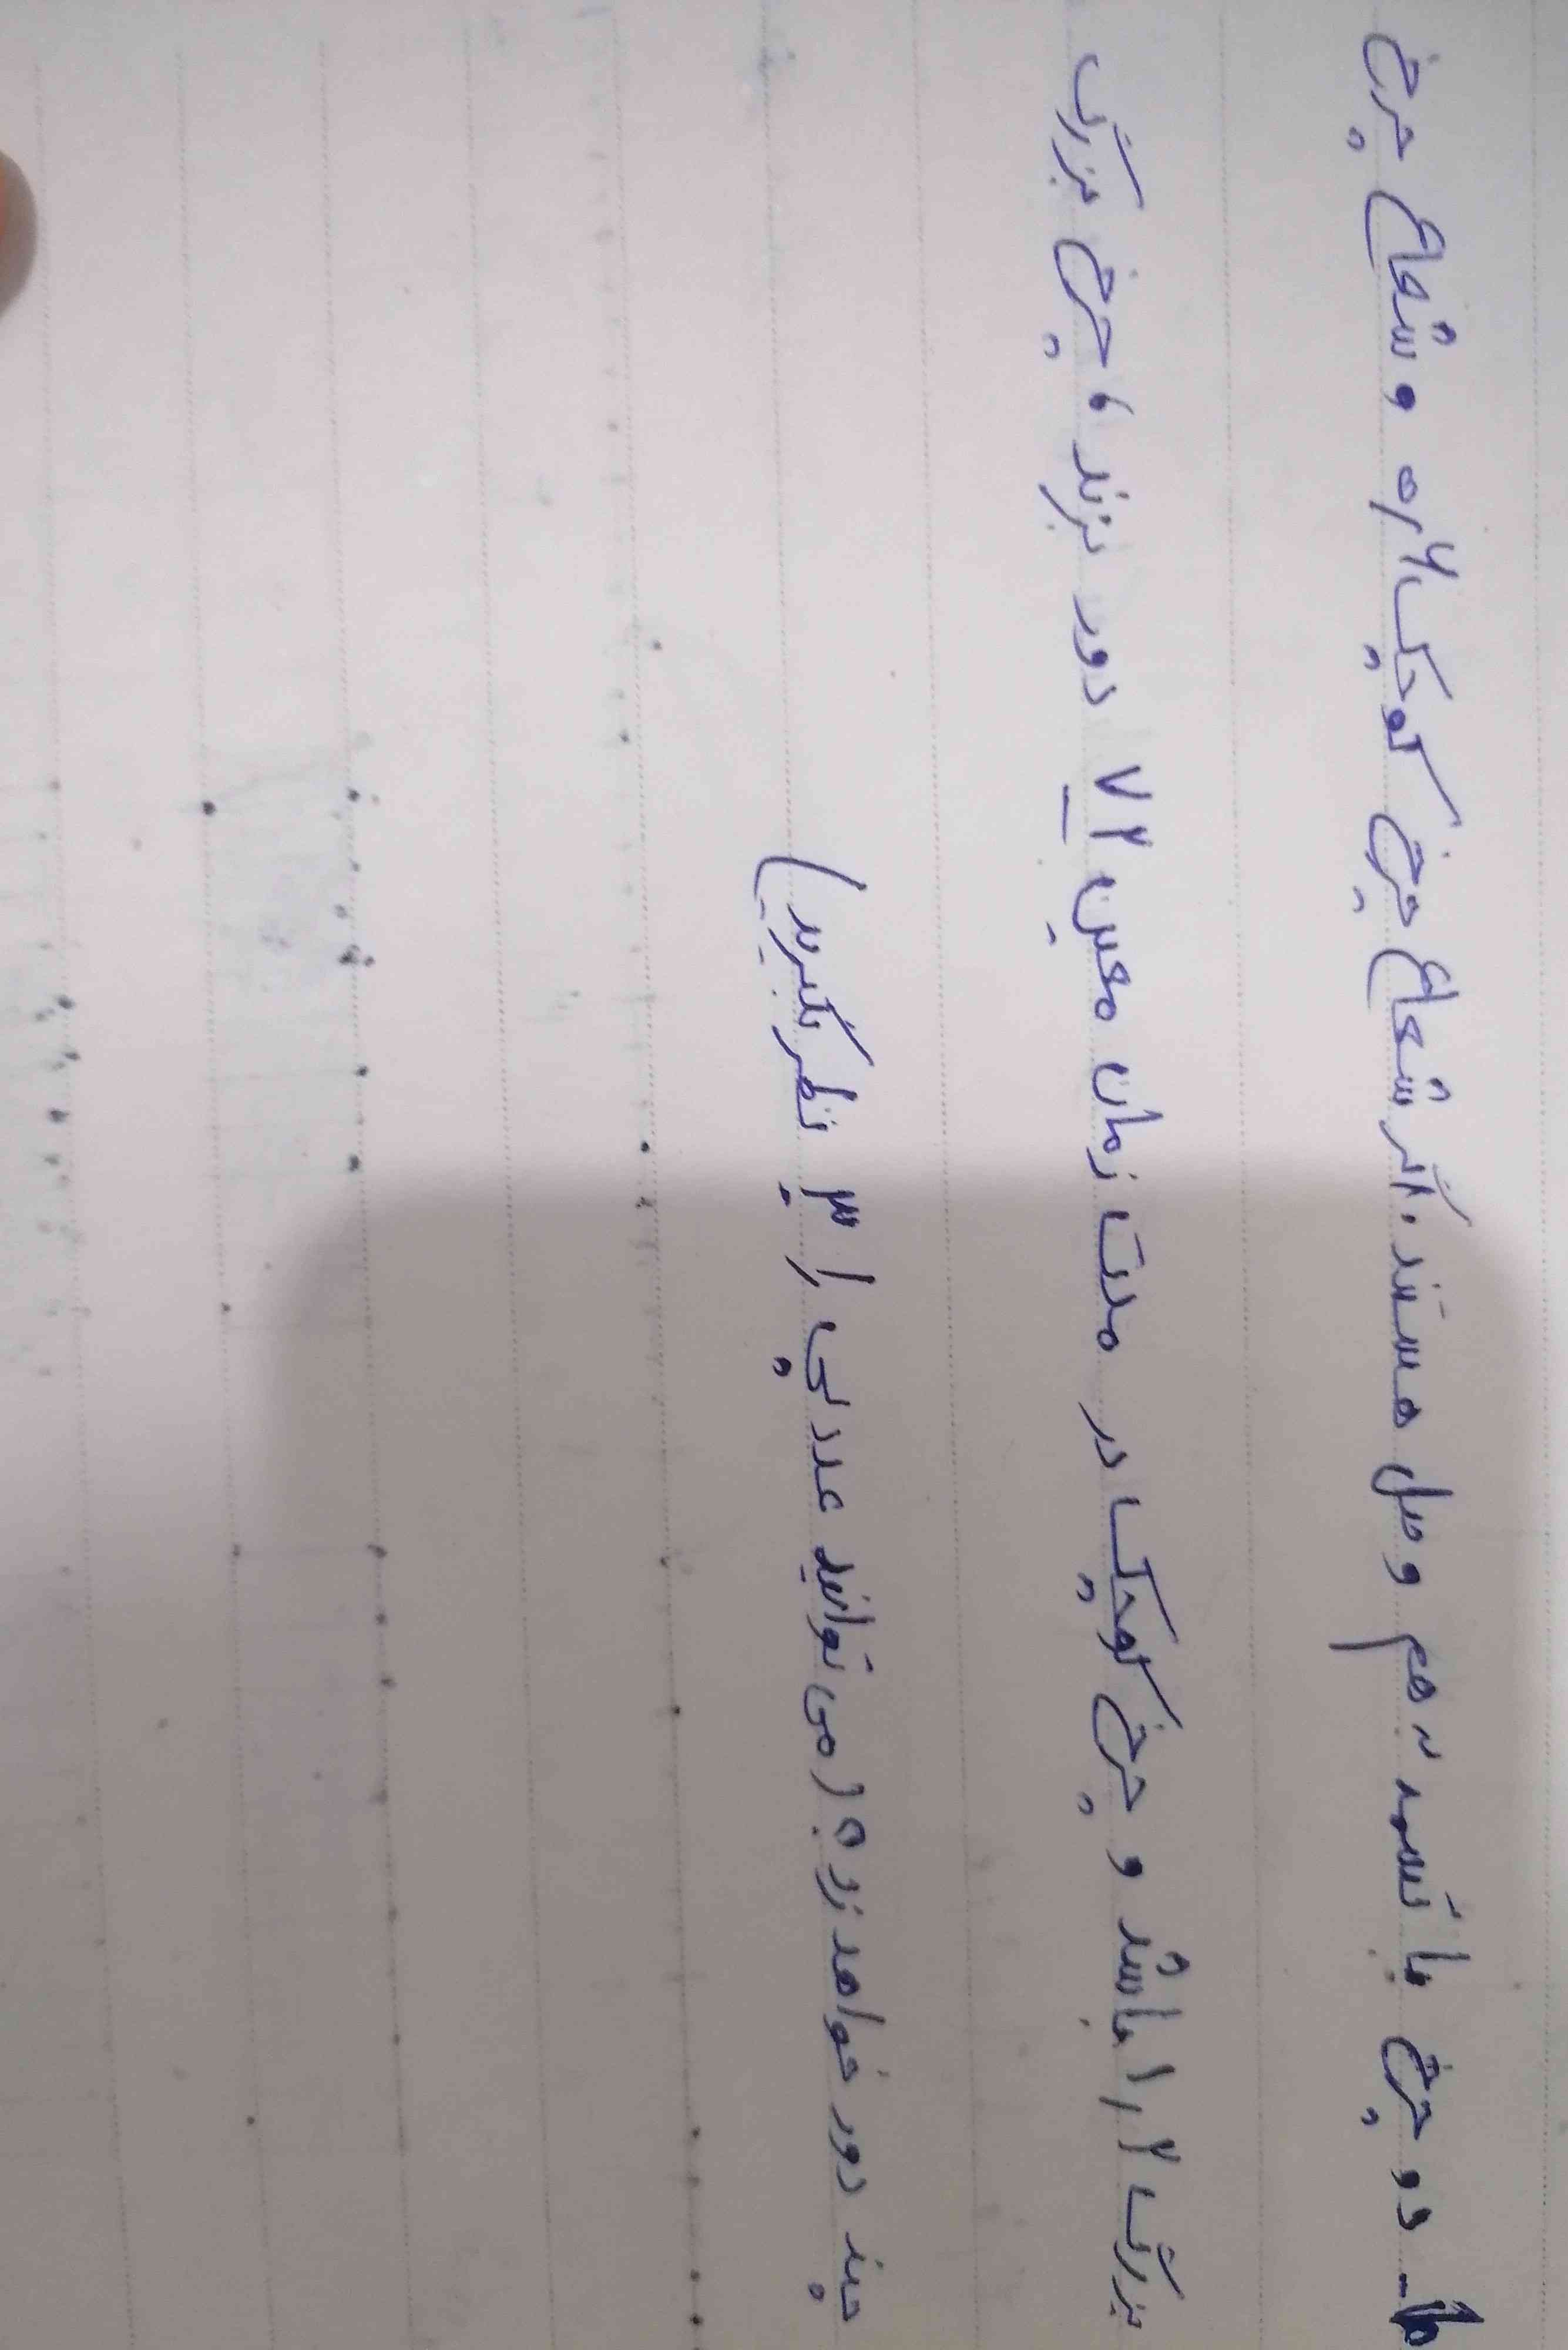 دو چرخ با تسمه به هم وصل هستند. اگر شعاع چرخ کوچک ۰٫۶ و شعاع چرخ
بزرگ ۱٫۲ باشد و چرخ کوچک در مدت زمان معین ۷۲ دور بزند، چرخ بزرگ
چند دور خواهد زد؟ (می توانید عدد پی را ۳ نظر بگیرید)